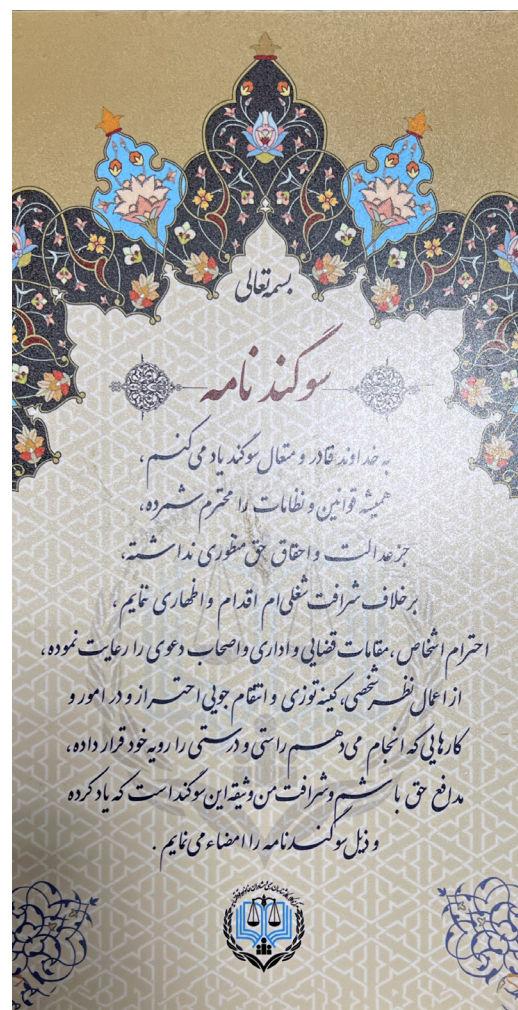 بسمه تعالی
سوگند نامه
به خداوند قادر و متعال سوگند یاد می‌کنم،
همیشه قوانین و نظامات را محترم شمرده،
جز عدالت و احقاق حق منظوری نداشته،
برخلاف شرافت شغلی‌ام اقدام و اظهاری ننمایم،
احترام اشخاص، مقامات قضایی و اداری و اصحاب دعوی را رعایت نموده،
از اعمال نظر شخصی، کینه‌توزی و انتقام جویی احتراز و در امور و
کارهایی که انجام می‌دهم راستی و درستی را رویه خود قرار داده،
مدافع حق باشم و شرافت من وثیقه این سوگند است که یاد کرده
و ذیل سوگندنامه را امضاء می‌نمایم.